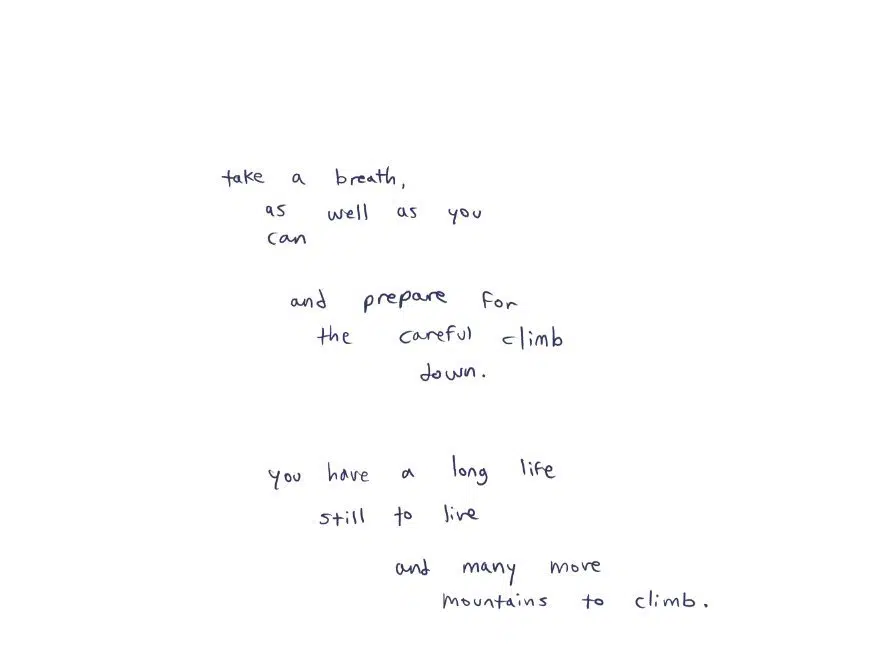 take a breath,
as well as you
can
and prepare for
the careful climb
down.
you have a long life
still to live
and many more
mountains to climb.